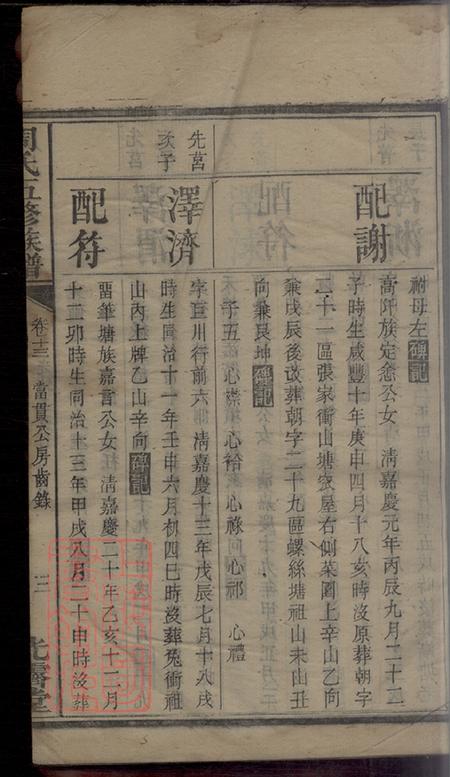 祔母左碑記
配謝
高阡族定悆公女 清嘉慶元年丙辰九月二十二
子時生咸豐十年庚申四月十八亥時沒原葬朝字
二十一區張家衝山塘密屋右側菜園上辛山乙向
兼戊辰後改葬朝字二十九區螺絲塘祖山未山丑
向兼艮坤碑記
子五 心 心袷 心祿 心祁 心禮
先莒
次子
澤濟
字巨川行前六 清嘉慶十三年戊辰七月十八戌
時生同治十一年壬申六月初四巳時沒葬兔衝祖
山內上牌乙山辛向碑記
配符
畱筆塘族嘉言公女 清嘉慶二十年乙亥十二月
十二卯時生同治十三年甲戌八月二十申時沒葬
周氏五修族譜
卷十三
富貫公房齒錄
三
光霽堂